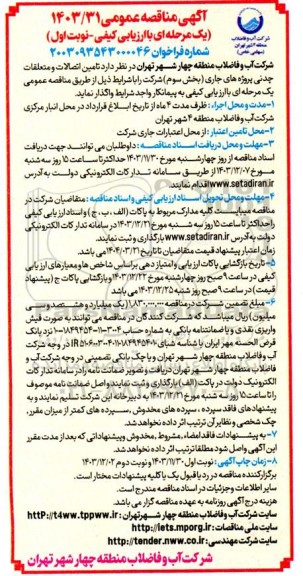 آگهی مناقصه عمومی ۱۴۰۳/۳۱
(یک مرحله‌ای با ارزیابی کیفی - نوبت اول)
شماره فراخوان ۲۰۰۳۰۹۳۵۴۳۰۰۰۰۴۶
شرکت آب و فاضلاب
منطقه ۴ شهر تهران
(سهامی خاص)
شرکت آب و فاضلاب منطقه چهار شهر تهران در نظر دارد تامین اتصالات و متعلقات
چدنی پروژه های جاری (بخش سوم) شرکت را با شرایط ذیل از طریق مناقصه عمومی
یک مرحله ای با ارزیابی کیفی به پیمانکار واجد شرایط واگذار نماید.
۱- مدت و محل اجراء: ظرف مدت ۴ ماه از تاریخ ابلاغ قرارداد در محل انبار مرکزی
شرکت آب و فاضلاب منطقه ۴ شهر تهران
۲- محل تامین اعتبار: از محل اعتبارات جاری شرکت
۳- مهلت و محل دریافت اسناد مناقصه: داوطلبان می توانند جهت دریافت
اسناد مناقصه از روز چهارشنبه مورخ ۱۴۰۳/۱۱/۳۰ حداکثر تا ساعت ۱۵ روز سه شنبه
مورخ ۱۴۰۳/۱۲/۰۷ از طریق سامانه تدارکات الکترونیکی دولت به آدرس
www.setadiran.ir اقدام نمایند.
۴- مهلت و محل تحویل اسناد ارزیابی کیفی و اسناد مناقصه: متقاضیان شرکت در
مناقصه میبایست کلیه مدارک مربوط به پاکات (الف، ب، ج) و اسناد ارزیابی کیفی
را حداکثر تا ساعت ۱۵ روز سه شنبه مورخ ۱۴۰۳/۱۲/۲۱ در سامانه تدارکات الکترونیکی
دولت به آدرس www.setadiran.ir بارگذاری و ثبت نمایند.
زمان اعتبار پیشنهاد قیمت متقاضیان تا تاریخ ۱۴۰۴/۰۳/۲۱ می باشد.
۵- تاریخ بازگشایی پاکات ارزیابی و امتیازدهی براساس شاخص ها و معیارهای ارزیابی
کیفی در ساعت ۹ صبح روز چهارشنبه مورخ ۱۴۰۳/۱۲/۲۲ و بازگشایی پاکات ج (پیشنهاد
قیمت) در ساعت ۹ صبح روز شنبه ۱۴۰۳/۱۲/۲۵ می باشد
۶- مبلغ تضمین شرکت در مناقصه ۱,۸۳۰,۰۰۰,۰۰۰ (یک میلیارد و هشتصد و سی
میلیون) ریال میباشد که شرکت کنندگان در مناقصه می توانند به صورت فیش
واریزی نقدی و یا ضمانتنامه بانکی به شماره حساب
نزد بانک
قرض الحسنه مهر ایران با شناسه شبای
در وجه شرکت
آب و فاضلاب منطقه چهار شهر تهران و یا چک بانکی تضمینی در وجه شرکت آب و
فاضلاب منطقه چهار شهر تهران دریافت و تصویر ضمانت نامه را در سامانه تدارکات
الکترونیک دولت در پاکات (الف) بارگذاری و ثبت نمایند و اصل ضمانت نامه موصوف
را تا ساعت ۱۵ روز سه شنبه مورخ ۱۴۰۳/۱۲/۲۱ به دبیرخانه این شرکت تسلیم نمایند و به
پیشنهادهای فاقد سپرده، سپرده های مخدوش، سپرده های کمتر از میزان مقرر،
چک شخصی و نظایر آن ترتیب اثر داده نخواهد شد.
۷- به پیشنهادات فاقد امضاء، مشروط، مخدوش و پیشنهاداتی که بعد از مدت مقرر
این آگهی واصل شود مطلقا ترتیب اثر داده نخواهد شد.
۸- زمان چاپ آگهی: نوبت اول ۱۴۰۳/۱۱/۳۰ و نوبت دوم ۱۴۰۳/۱۲/۰۲
برگزار کننده مناقصه در رد یا قبول یک یا کلیه پیشنهادات مختار است.
سایر اطلاعات و جزئیات در اسناد مناقصه مندرج است.
هزینه درج آگهی روزنامه به عهده مناقصه گزار می باشد.
سایت شرکت آب و فاضلاب منطقه چهار شهر تهران: http://t4ww.tppww.ir
سایت ملی مناقصات: http://iets.mporg.ir
سایت شرکت مهندسی: http://tender.nww.co.ir
شرکت آب و فاضلاب منطقه چهار شهر تهران